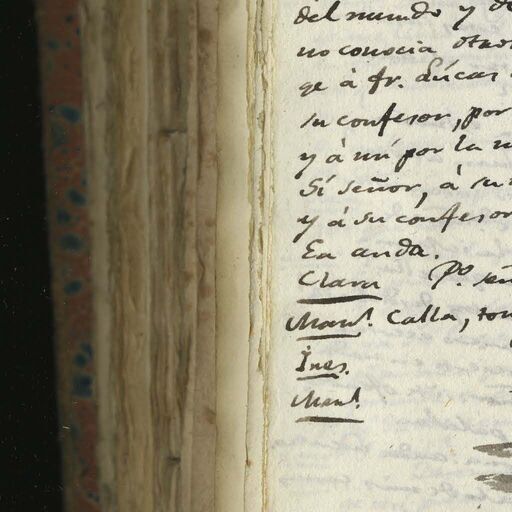 del mundo y de
no conocia otro
ge à fr. Lúcas
su confesor, por
y à mi por la m
Sí señor, à su
y à su confesor
Ea anda.
Clara Po. señ
Manl. Calla, ton
Ines.
Manl.